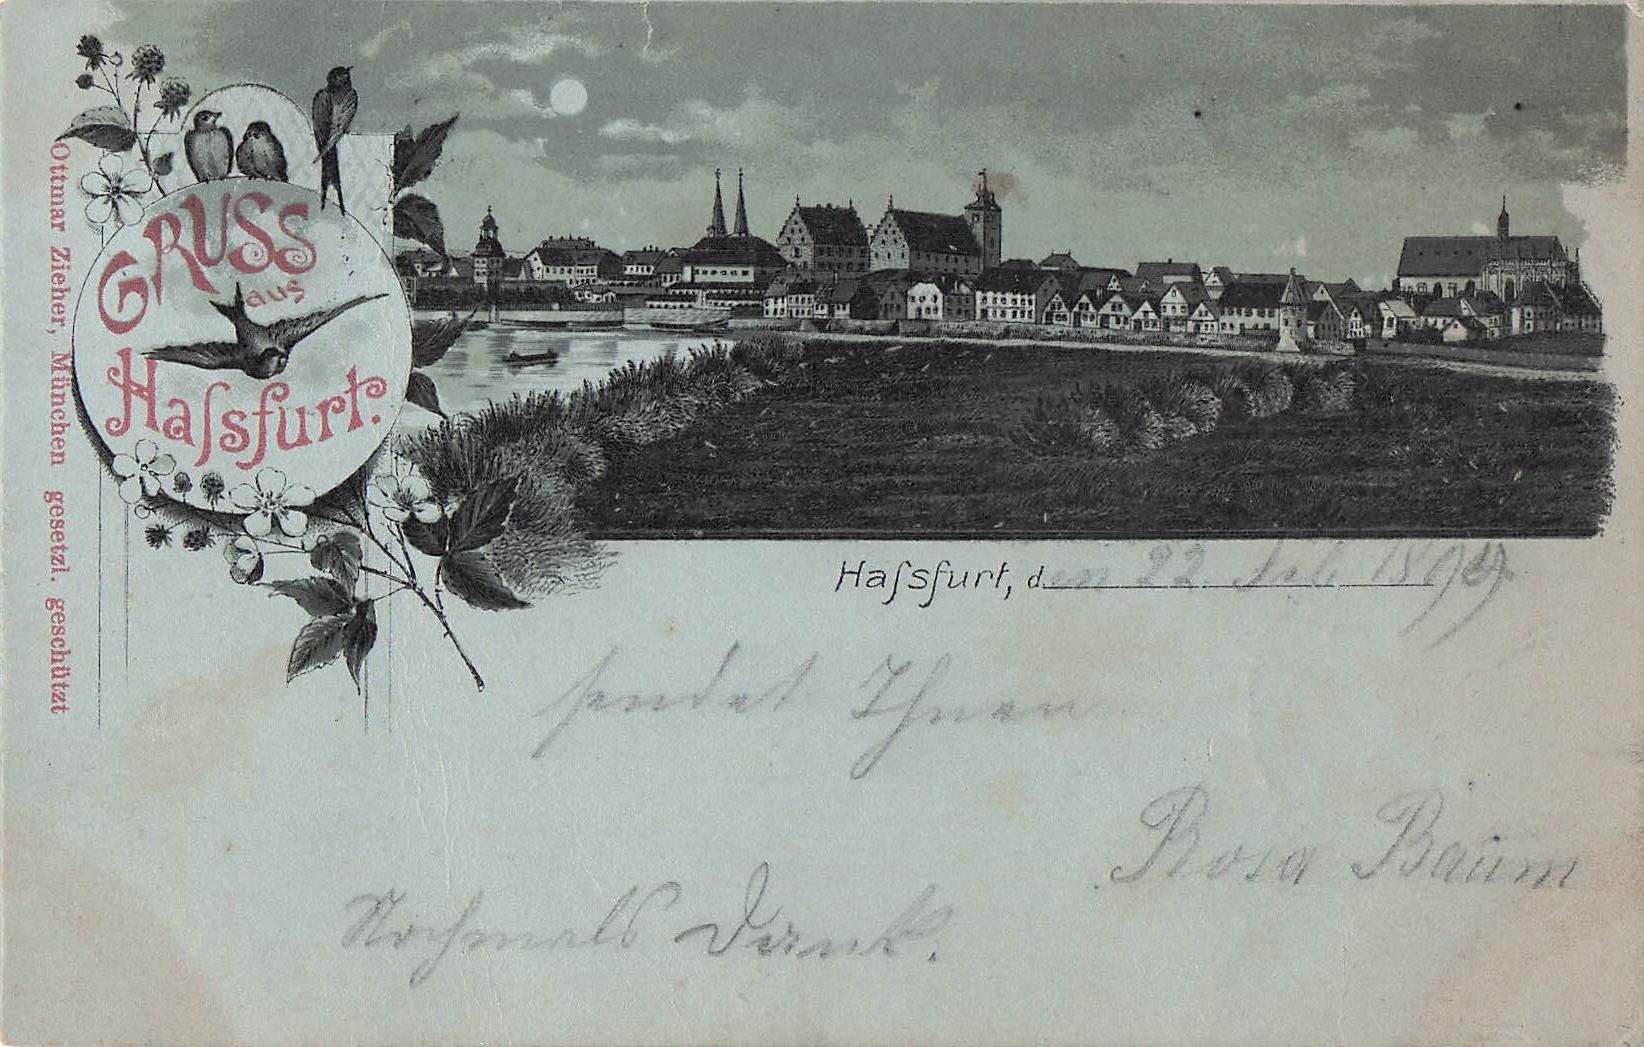 GRUSS
aus
Haſsfurt.
Ottmar Zieher, München gesetzl. geschützt
Haſsfurt, den 22
sendet Ihnen
Rosa Baum
Nochmals Dank.